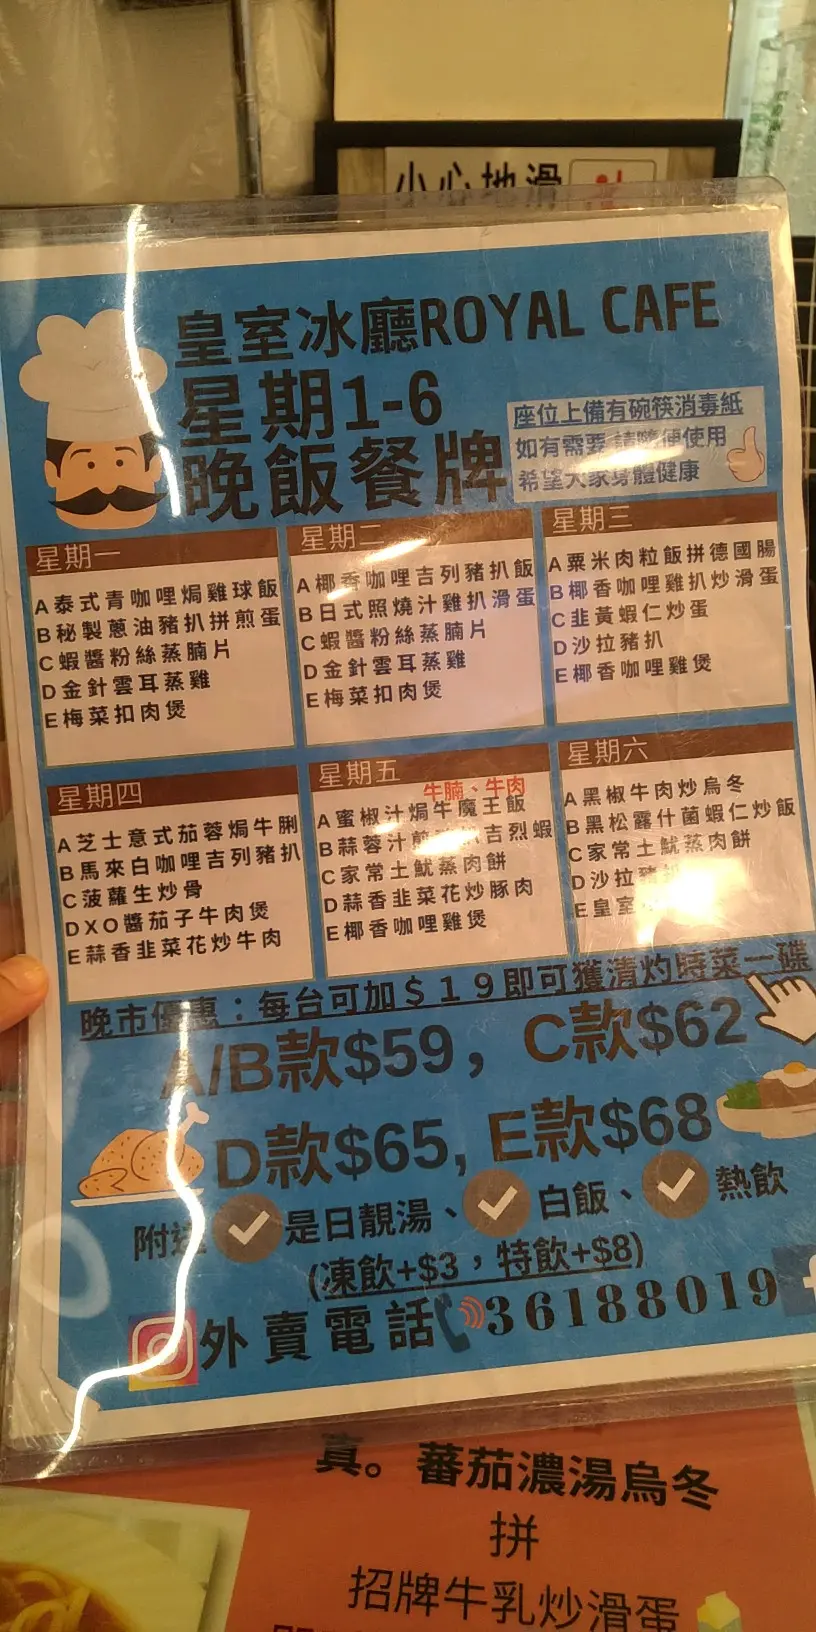 小心地滑
皇室冰廳ROYAL CAFE
星期1-6
晚飯餐牌
座位上備有碗筷消毒紙
如有需要 請隨便使用
希望大家身體健康
星期一
A泰式青咖哩焗雞球飯
B秘製蔥油豬扒拼煎蛋
C蝦醬粉絲蒸腩片
D金針雲耳蒸雞
E梅菜扣肉煲
星期二
A椰香咖哩吉列豬扒飯
B日式照燒汁雞扒滑蛋
C蝦醬粉絲蒸腩片
D金針雲耳蒸雞
E梅菜扣肉煲
星期三
A粟米肉粒飯拼德國腸
B椰香咖哩雞扒炒滑蛋
C韭黃蝦仁炒蛋
D沙拉豬扒
E椰香咖哩雞煲
星期四
A芝士意式茄蓉焗牛脷
B馬來白咖哩吉列豬扒
C菠蘿生炒骨
DXO醬茄子牛肉煲
E蒜香韭菜花炒牛肉
星期五
牛腩、牛肉
A蜜椒汁焗牛魔王飯
B蒜蓉汁煎 吉烈蝦
C家常土魷蒸肉餅
D蒜香韭菜花炒豚肉
E椰香咖哩雞煲
星期六
A黑椒牛肉炒烏冬
B黑松露什菌蝦仁炒飯
C家常土魷蒸肉餅
D沙拉豬
E皇室
晚市優惠：每台可加$19即可獲清灼時菜一碟
A/B款$59，C款$62
D款$65, E款$68
附送 是日靚湯、 白飯、 熱飲
(凍飲+$3，特飲+$8)
外賣電話 36188019
真。蕃茄濃湯烏冬
拼
招牌牛乳炒滑蛋